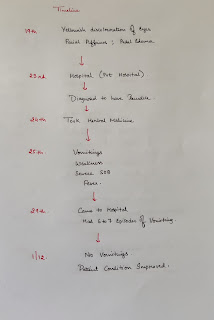 Timeline
19th Yellowish discoloration of eyes
Facial Puffiness ; Pedal Edema
23rd Hospital (Pvt Hospital)
Diagnosed to have Jaundice
24th Took Herbal Medicine
25th Vomitings
Weakness
Severe SOB
Fever
27th Came to Hospital
Had 6 to 7 Episodes of Vomiting
1/12 No Vomitings
Patient Condition Improved.